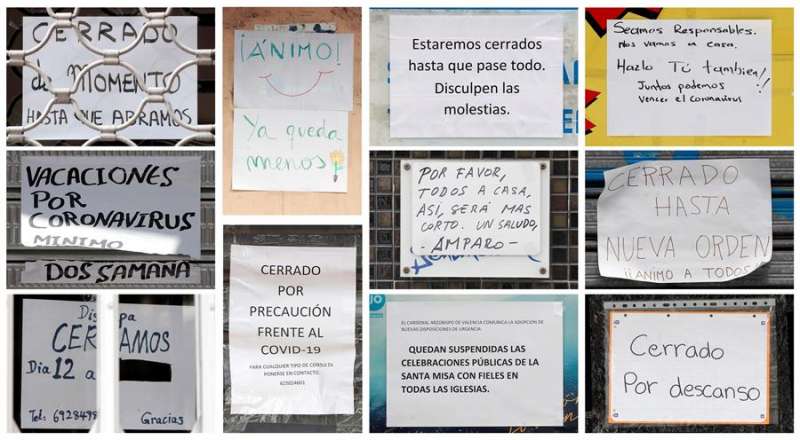 CERRADO
de MOMENTO
HASTA QUE ABRAMOS
¡ÁNIMO!
Ya queda
menos!
Estaremos cerrados
hasta que pase todo.
Disculpen las
molestias.
Seamos Responsables.
Nos vamos a casa.
Hazlo Tú tambien!!
Juntos podemos
vencer el coronavirus
VACACIONES
POR
CORONAVIRUS
MINIMO
DOS SEMANA
POR FAVOR,
TODOS A CASA,
ASI, SERÁ MAS
CORTO. UN SALUDO,
- AMPARO -
CERRADO
HASTA
NUEVA ORDEN
¡¡ANIMO A TODOS!
CERRADO
POR
PRECAUCIÓN
FRENTE AL
COVID-19
PARA CUALQUIER TIPO DE CONSULTA
PONERSE EN CONTACTO:
CER AMOS
Dia 12 a
Tel: 6928498
Gracias
EL CARDENAL ARZOBISPO DE VALENCIA COMUNICA LA ADOPCIÓN DE
NUEVAS DISPOSICIONES DE URGENCIA:
QUEDAN SUSPENDIDAS LAS
CELEBRACIONES PÚBLICAS DE LA
SANTA MISA CON FIELES EN
TODAS LAS IGLESIAS.
Cerrado
Por descanso